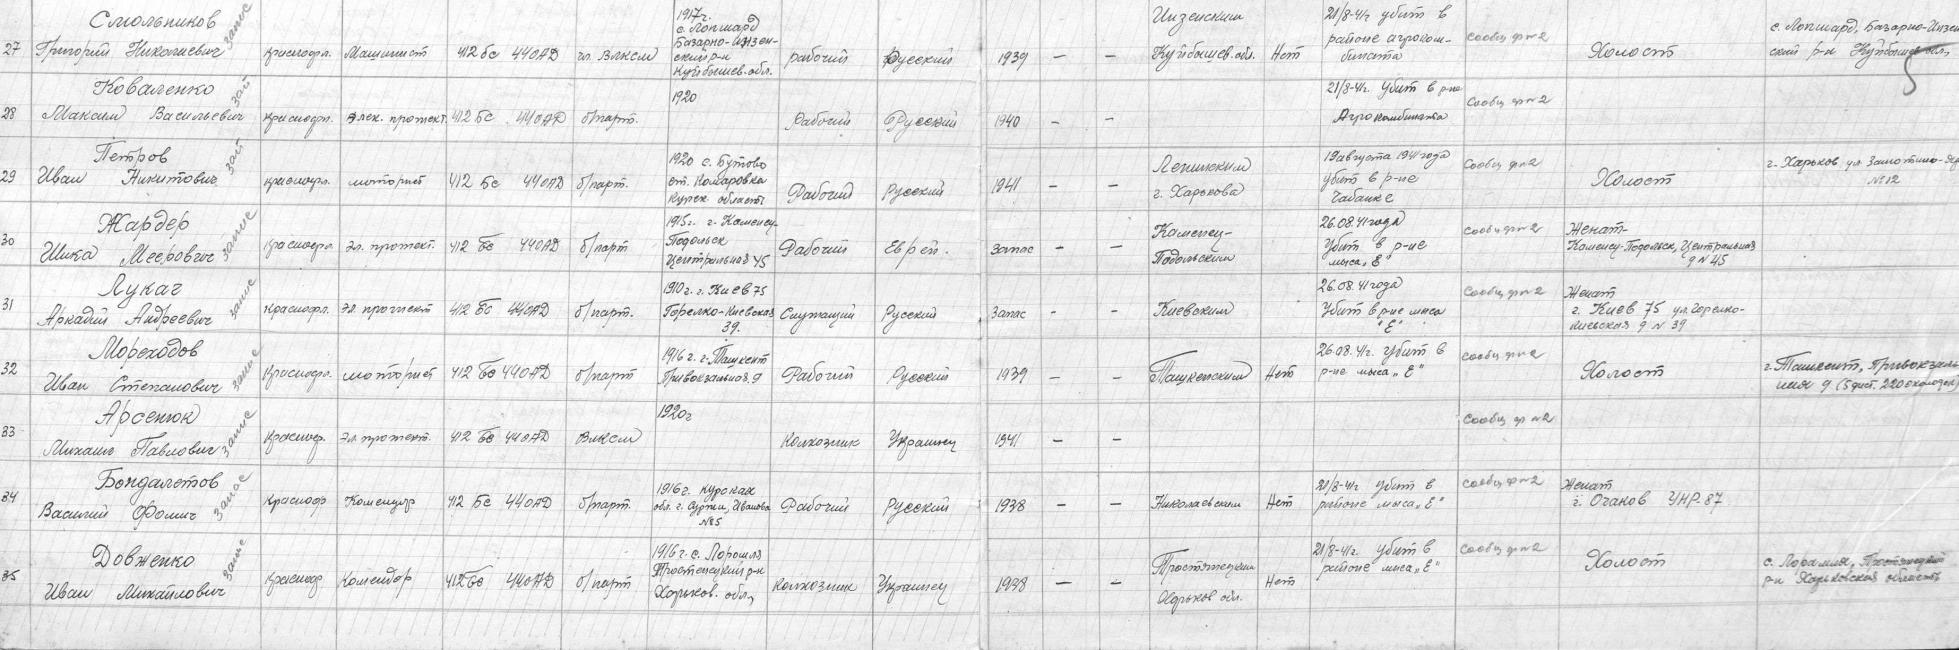 27 Смольников Григорий Николаевич запас краснофл. Машинист 412 бс 44ОАД чл. Влксм 1917г. с. Лопшард Базарно-Инзенский р-н Куйбышев. обл. рабочий Русский 1939 — — Инзенским Куйбышев. обл. Нет 21/8-41г убит в районе агрокомбината Сообщ ф№2 Холост с. Лопшард, Базарно-Инзенский р-н Куйбышев обл,
28 Коваленко Максим Васильевич краснофл. Элек. прожект. 412 бс 44ОАД б/парт. 1920 Рабочий Русский 1940 - - 21/8-41г. Убит в р-не Агрокомбината Сообщ ф№2
29 Петров Иван Никитович краснофл. моторист 412 Бс 44ОАД б/парт. 1920 с. Бутово ст. Комаровка Курск. область Рабочий Русский 1941 - - Ленинским г. Харькова 19 августа 1941 года убит в р-не Чабанке Сообщ ф№2 Холост г. Харьков ул №12
30 Жардер Шика Меерович запас Краснофл Эл. прожект. 412 бс 44ОАД б/парт 1915г. г. Каменец-Подольск Центральная 45 Рабочий Еврей. Запас - - Каменец-Подольским 26.08.41 года Убит в р-не мыса „Е" Сообщ ф№2 Женат- Каменец-Подольск, Центральная д №45
31 Лукач Аркадий Андреевич запас Краснофл. Эл прожект 412 бс 44ОАД б/парт. 1910г. г. Киев 75 Горелко-Киевская 39. Служащий Русский Запас - - Киевским 26.08.41 года Убит в р-не мыса "Е" Сообщ ф№2 Женат г. Киев 75 ул. Горелко-киевская д №39
32 Мореходов Иван Степанович запас Краснофл. моторист 412 бс 44ОАД б/парт. 1916г. г. Ташкент Привокзальная, 9 Рабочий Русский 1939 - - Ташкентским Нет 26.08.41г. убит в р-не мыса „Е" сообщ ф№2 Холост г. Ташкент, Привокзальная 9
33 Арсенюк Михаил Павлович запас Краснофл. Эл. прожект. 412 бс 44ОАД Влксм 1920г Колхозник Украинец 1941 - - Сообщ ф№2
34 Бондалетов Василий Фомич запас Краснофл Комендор 412 бс 44ОАД б/парт. 1916г. Курская обл. г. Суджи, Иванова №5 Рабочий Русский 1938 — — Николаевским Нет 21/8-41г убит в районе мыса „Е" Сообщ ф№2 Женат г. Очаков УНР-87
35 Довженко Иван Михайлович запас Краснофл Комендор 412 бс 44ОАД б/парт 1916г. с. Тростенецкий р-н Харьков. обл, колхозник Украинец 1938 — — Тростянецким Харьков обл. Нет 21/8-41г. убит в районе мыса „Е" Сообщ ф№2 Холост Тростянецкий р-н Харьковская область